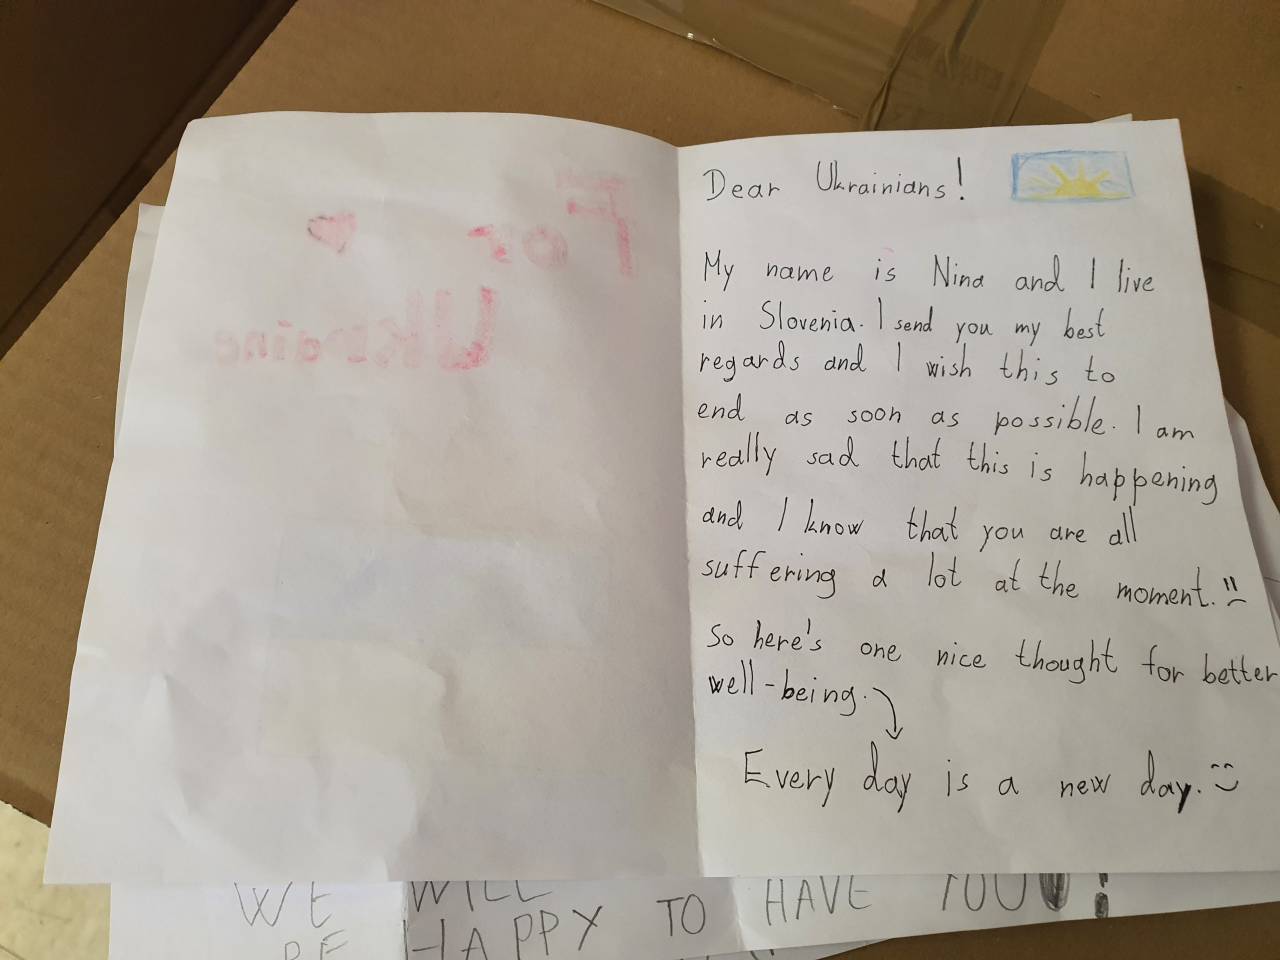 For
Ukraine
Dear Ukrainians!
My name is Nina and I live
in Slovenia. I send you my best
regards and I wish this to
end as soon as possible. I am
really sad that this is happening
and I know that you are all
suffering a lot at the moment. :(
So here's one nice thought for better
well-being.
Every day is a new day. :)
WE WILL
BE HAPPY TO HAVE YOU!